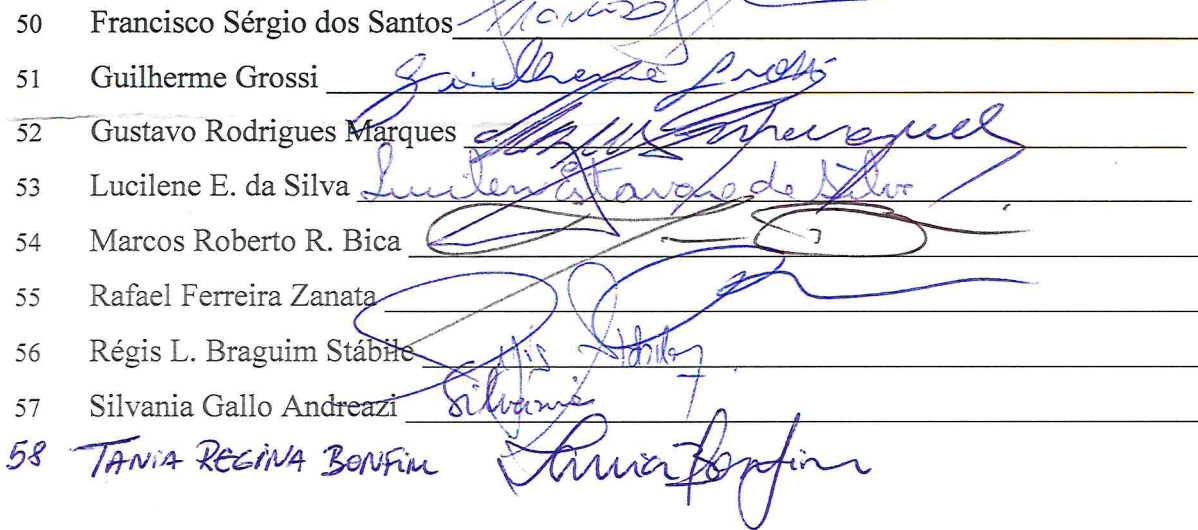 50 Francisco Sérgio dos Santos
51 Guilherme Grossi Guilherme Grossi
52 Gustavo Rodrigues Marques
53 Lucilene E. da Silva Lucilene Estavare da Silva
54 Marcos Roberto R. Bica
55 Rafael Ferreira Zanata
56 Régis L. Braguim Stábile Régis Stábile
57 Silvania Gallo Andreazi Silvania
58 TANIA REGINA BONFIM Tania Bonfim